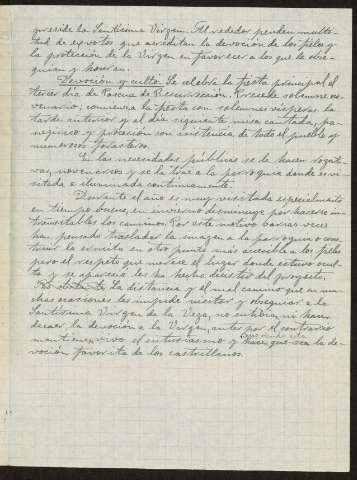 preside la Santísima Virgen. Alrededor penden multi-
tud de exvotos que acreditan la devoción de los fieles y
la protección de la Virgen en favorecer a los que la obse-
quian y honran.
Devoción y culto. Se celebra la fiesta principal el
tercer día de Pascua de Resurrección. Precede solemne no-
venario; comienza la fiesta con solemnes vísperas la
tarde anterior y al día siguiente misa cantada, pa-
negírico y procesión con asistencia de todo el pueblo y
numerosos forasteros.
En las necesidades públicas se le hacen rogati-
vas, novenarios y se la trae a la parroquia donde es vi-
sitada e iluminada continuamente.
Durante el año es muy visitada especialmente
en tiempo bueno, en invierno disminuye por hacerse in-
transitables los caminos. Por este motivo varias veces
han pensado trasladar la imagen a la parroquia o cons-
truir la ermita en otro punto más accesible a los fieles
pero el respeto que merece el lugar donde estuvo ocul-
ta y se apareció les ha hecho desistir del proyecto.
La distancia y el mal camino que en mu-
chas ocasiones les impide visitar y obsequiar a la
Santísima Virgen de la Vega, no entibia, ni hacen
decaer, la devoción a la Virgen, antes por el contrario
mantiene vivo el entusiasmo y hace que sea la de-
voción favorita de los castrellanos.